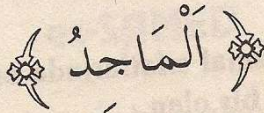 ﴿ اَلْمَاجِدُ ﴾